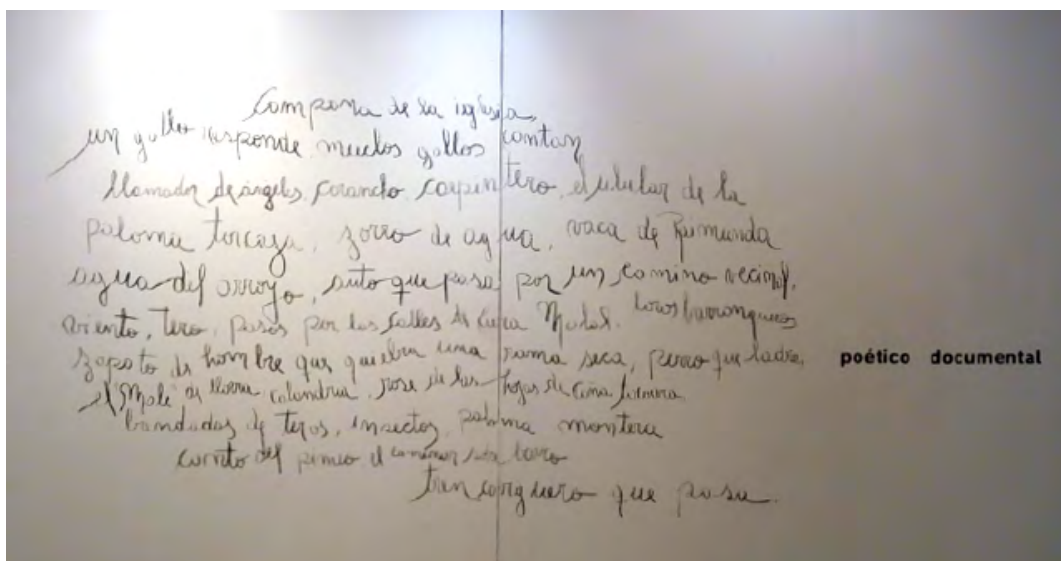 Campana de la iglesia,
un gallo responde muchos gallos cantan
llamador de ángeles, corancho, carpintero, el ulular de la
paloma torcaza, zorro de agua, vaca de Raimunda
agua del arroyo, auto que pasa por un camino vecinal,
viento, tero, pasos por las calles de Cura Malal. loros barranqueros
zapato de hombre que quiebra una rama seca, perro que ladra,
calandria, roce de las hojas de
bandadas de teros, insectos, paloma montera
canto del el caminar barro
tren carguero que pasa.
poético documental